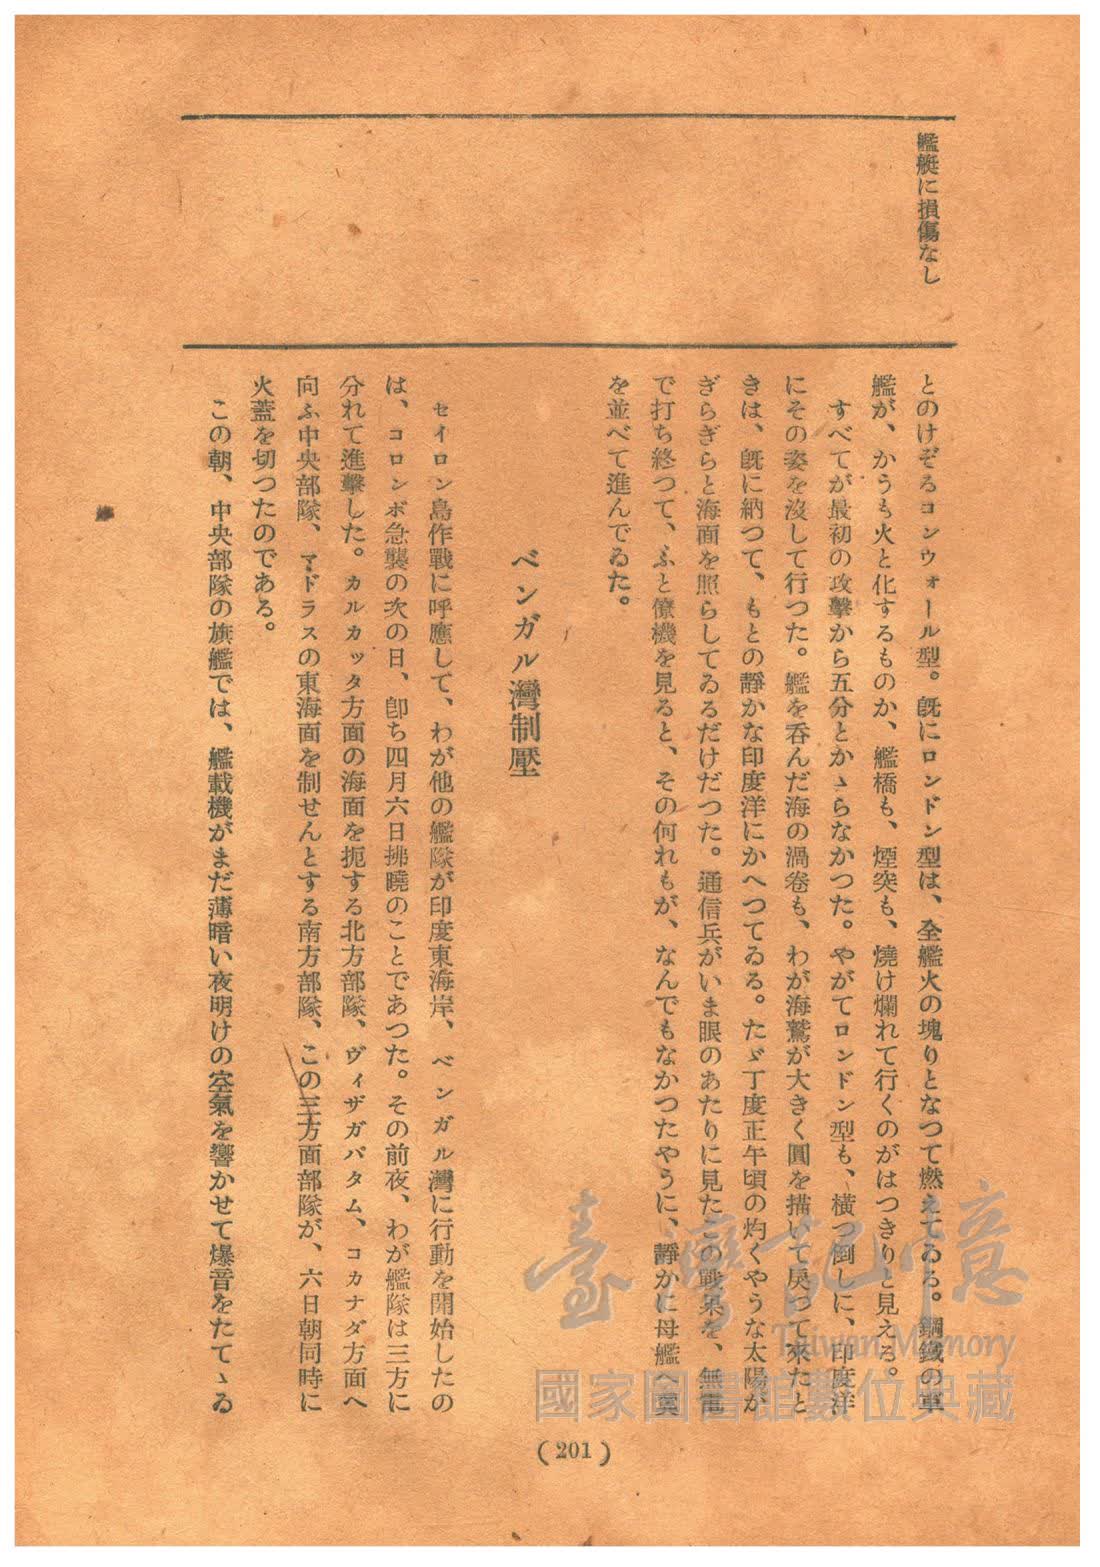 艦艇に損傷なし
とのけぞるコンウォール型。旣にロンドン型は、全艦火の塊りとなつて燃えてゐる。鋼鐵の軍
艦が、かうも火と化するものか、艦橋も、煙突も、燒け爛れて行くのがはつきりと見える。
すべてが最初の攻擊から五分とかゝらなかつた。やがてロンドン型も、橫つ倒しに、印度洋
にその姿を沒して行つた。艦を呑んだ海の渦卷も、わが海鷲が大きく圓を描いて戾つて來たと
きは、旣に納つて、もとの靜かな印度洋にかへつてゐる。たゞ丁度正午頃の灼くやうな太陽が
ぎらぎらと海面を照らしてゐるだけだつた。通信兵がいま眼のあたりに見たこの戰果を、無電
で打ち終つて、ふと僚機を見ると、その何れもが、なんでもなかつたやうに、靜かに母艦へ翼
を並べて進んでゐた。
ベンガル灣制壓
セイロン島作戰に呼應して、わが他の艦隊が印度東海岸、ベンガル灣に行動を開始したの
は、コロンボ急襲の次の日、卽ち四月六日拂曉のことであつた。その前夜、わが艦隊は三方に
分れて進擊した。カルカッタ方面の海面を扼する北方部隊、ヴィザガパタム、コカナダ方面へ
向ふ中央部隊、マドラスの東海面を制せんとする南方部隊、この三方面部隊が、六日朝同時に
火蓋を切つたのである。
この朝、中央部隊の旗艦では、艦載機がまだ薄暗い夜明けの空氣を響かせて爆音をたてゝゐ
(201)
臺灣記憶
Taiwan Memory
國家圖書館數位典藏